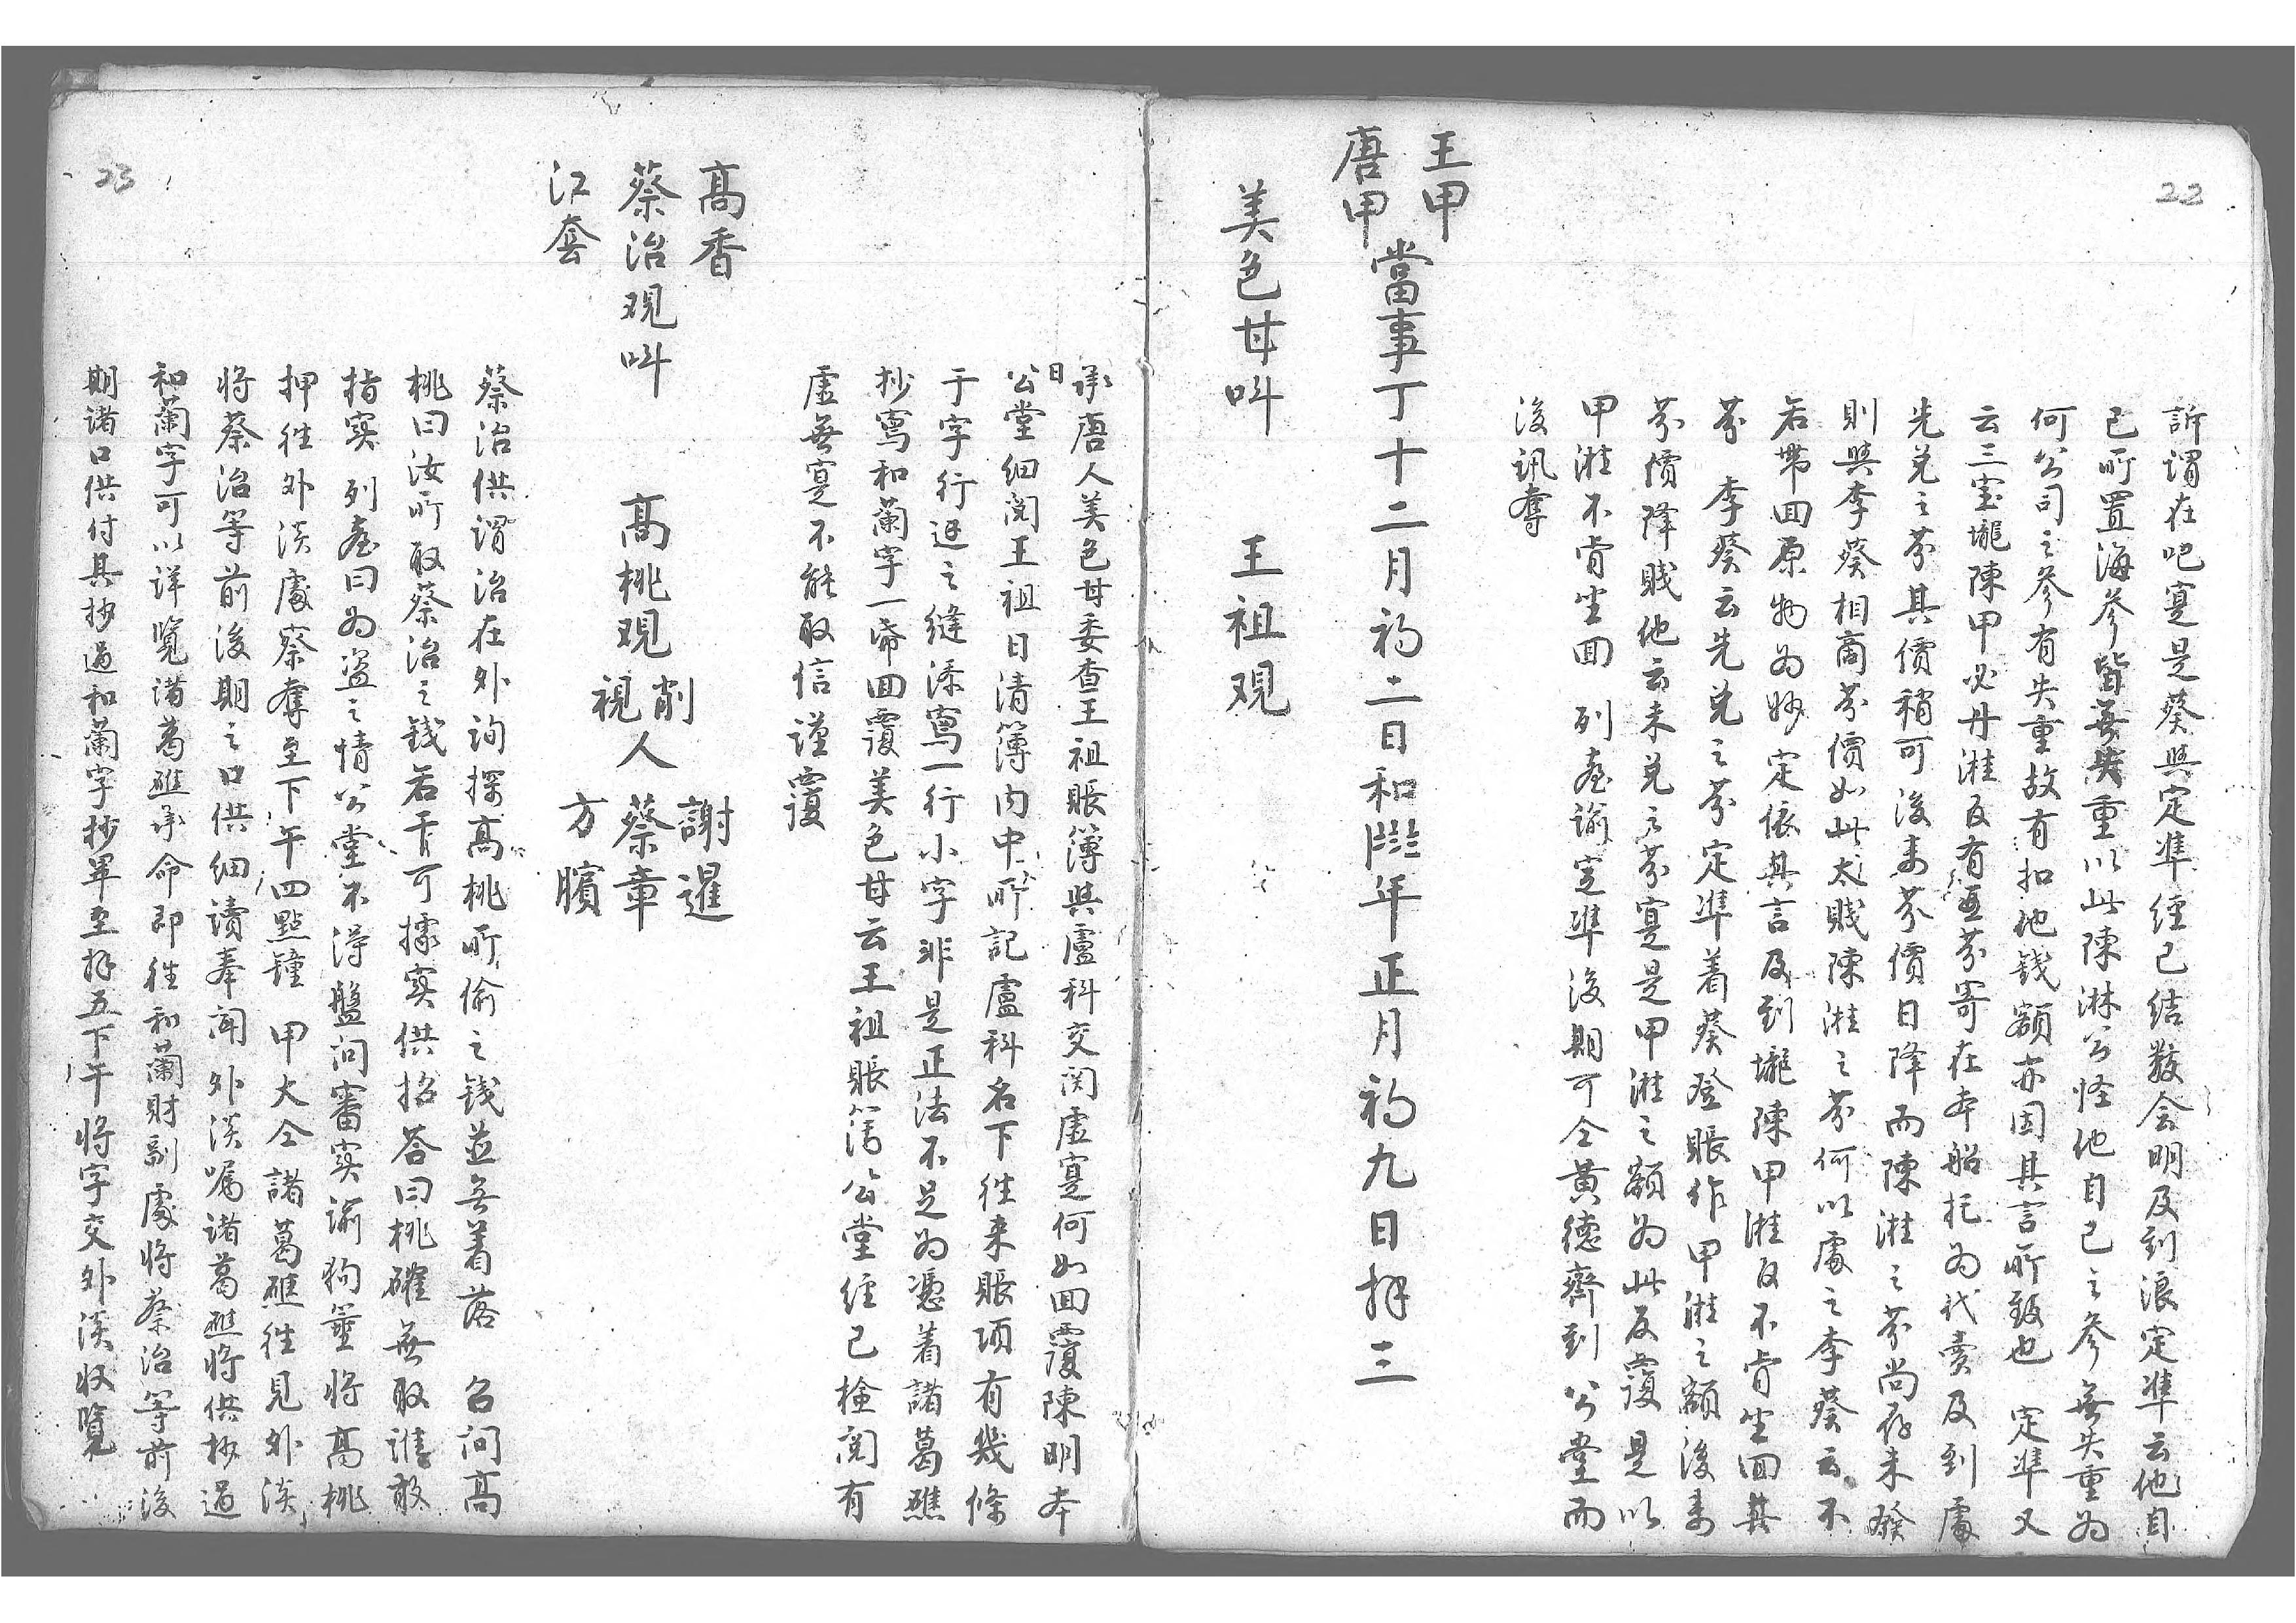 22
訴謂在吧寔是葵與定準經已結數会明及到浪定準云他自
己所置海參皆無失重以此陳淋公怪他自己之參無失重為
何公司之參有失重故有扣他錢額亦因其言所致也 定準又
云三宝壠陳甲必丹漼及有兩芬寄在本船托為代賣及到處
先兑之芬其價稍可後来芬價日降而陳漼之芬尚存未發
則與李葵相商芬價如此太賤陳漼之芬何以處之李葵云不
若帶回原物為妙定依其言及到壠陳甲漼及不肯坐回其
芬 李葵云先兑之芬定準着葵登賬作甲漼之額後来
芬價降賤他云未兑之芬寔是甲漼之額為此反覆是以
甲漼不肯坐回 列臺諭定準後期可仝黃德齊到公堂而
後訊奪
王甲
唐甲
當事丁十二月初二日和年正月初九日拜三
美色甘呌 王祖覌
承唐人美色甘委查王祖賬簿與盧科交関虛寔何如回覆陳明本
日
公堂細閱王祖日清簿内中所記盧科名下往来賬項有幾條
于字行逕之縫添寫一行小字非是正法不足為憑着諸葛礁
抄寫和蘭字一帋回覆美色甘云王祖賬簿公堂經已檢閱有
虛無寔不能取信謹覆
高香
蔡治覌呌 高桃覌
江套
削視人
謝暹
蔡章
方臏
蔡治供謂治在外詢探高桃所偷之錢並無着落 召问高
桃曰汝所取蔡治之錢若干可據实供招答曰桃確無取誰敢
指实 列臺曰為盗之情公堂不得盤问審实諭狗𫁂将高桃
押往外淡處察奪至下午四點鐘 甲大仝諸葛礁往見外淡
将蔡治等前後期之口供細讀奉闻外淡嘱诸葛礁将供抄過
和蘭字可以详覧诸葛礁承命即往和蘭財副處将蔡治等前後
期诸口供付其抄過和蘭字抄畢至拜五下午将字交外淡收覧
23